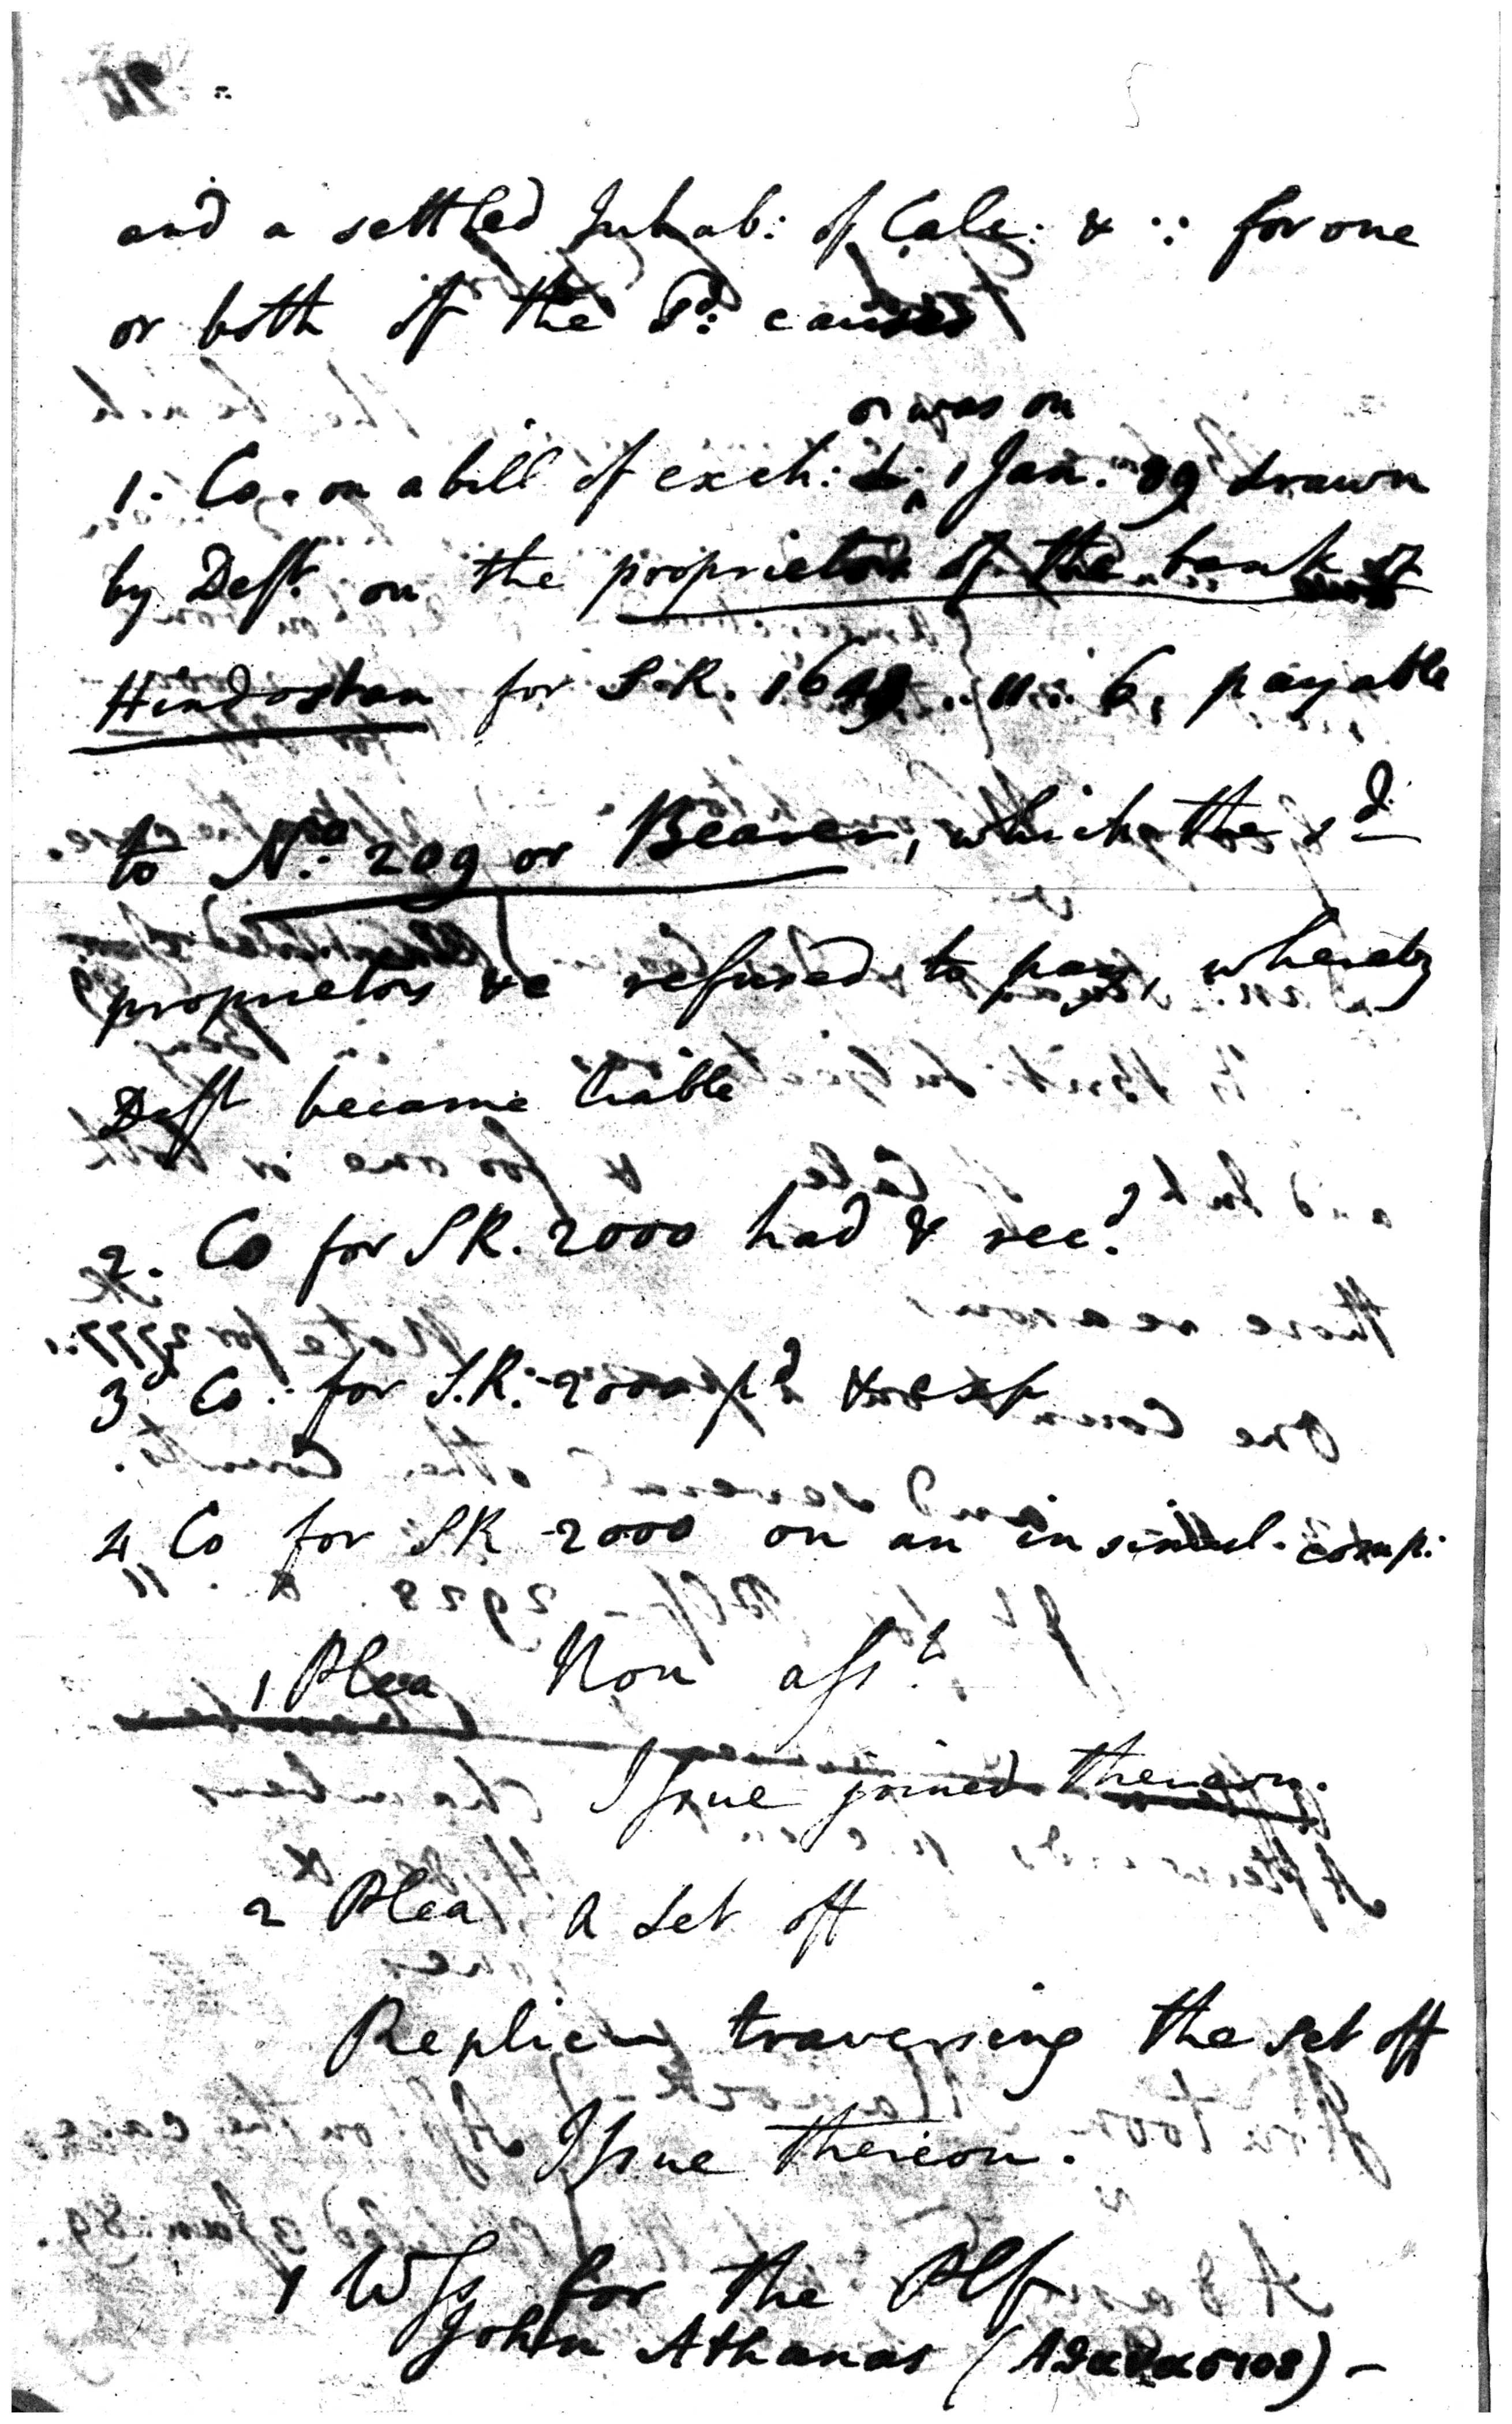 and a settled Inhab: of Calc: & ∵ for one
or both of the sd: causes
or was on
1. Co. on a bill of exch: d: 1 Jan. 89 drawn
by Deft. on the proprietors of the bank of
Hindostan for S.R. 1649 .. 11 .. 6, payable
to No. 209 or Bearer, which the sd.
proprietors &c refused to pay, whereby
Deft became liable
2. Co for S.R. 2000 had & recd.
3 Co: for S.R. 2000 pd &
4 Co for S.R 2000 on an insimul. comp:
1 Plea Non asst.
Issue joined thereon.
2 Plea a set off
Replicn traversing the set off
Issue thereon.
1 Wss for the Plf
John Athanas (Αθανασιος) -